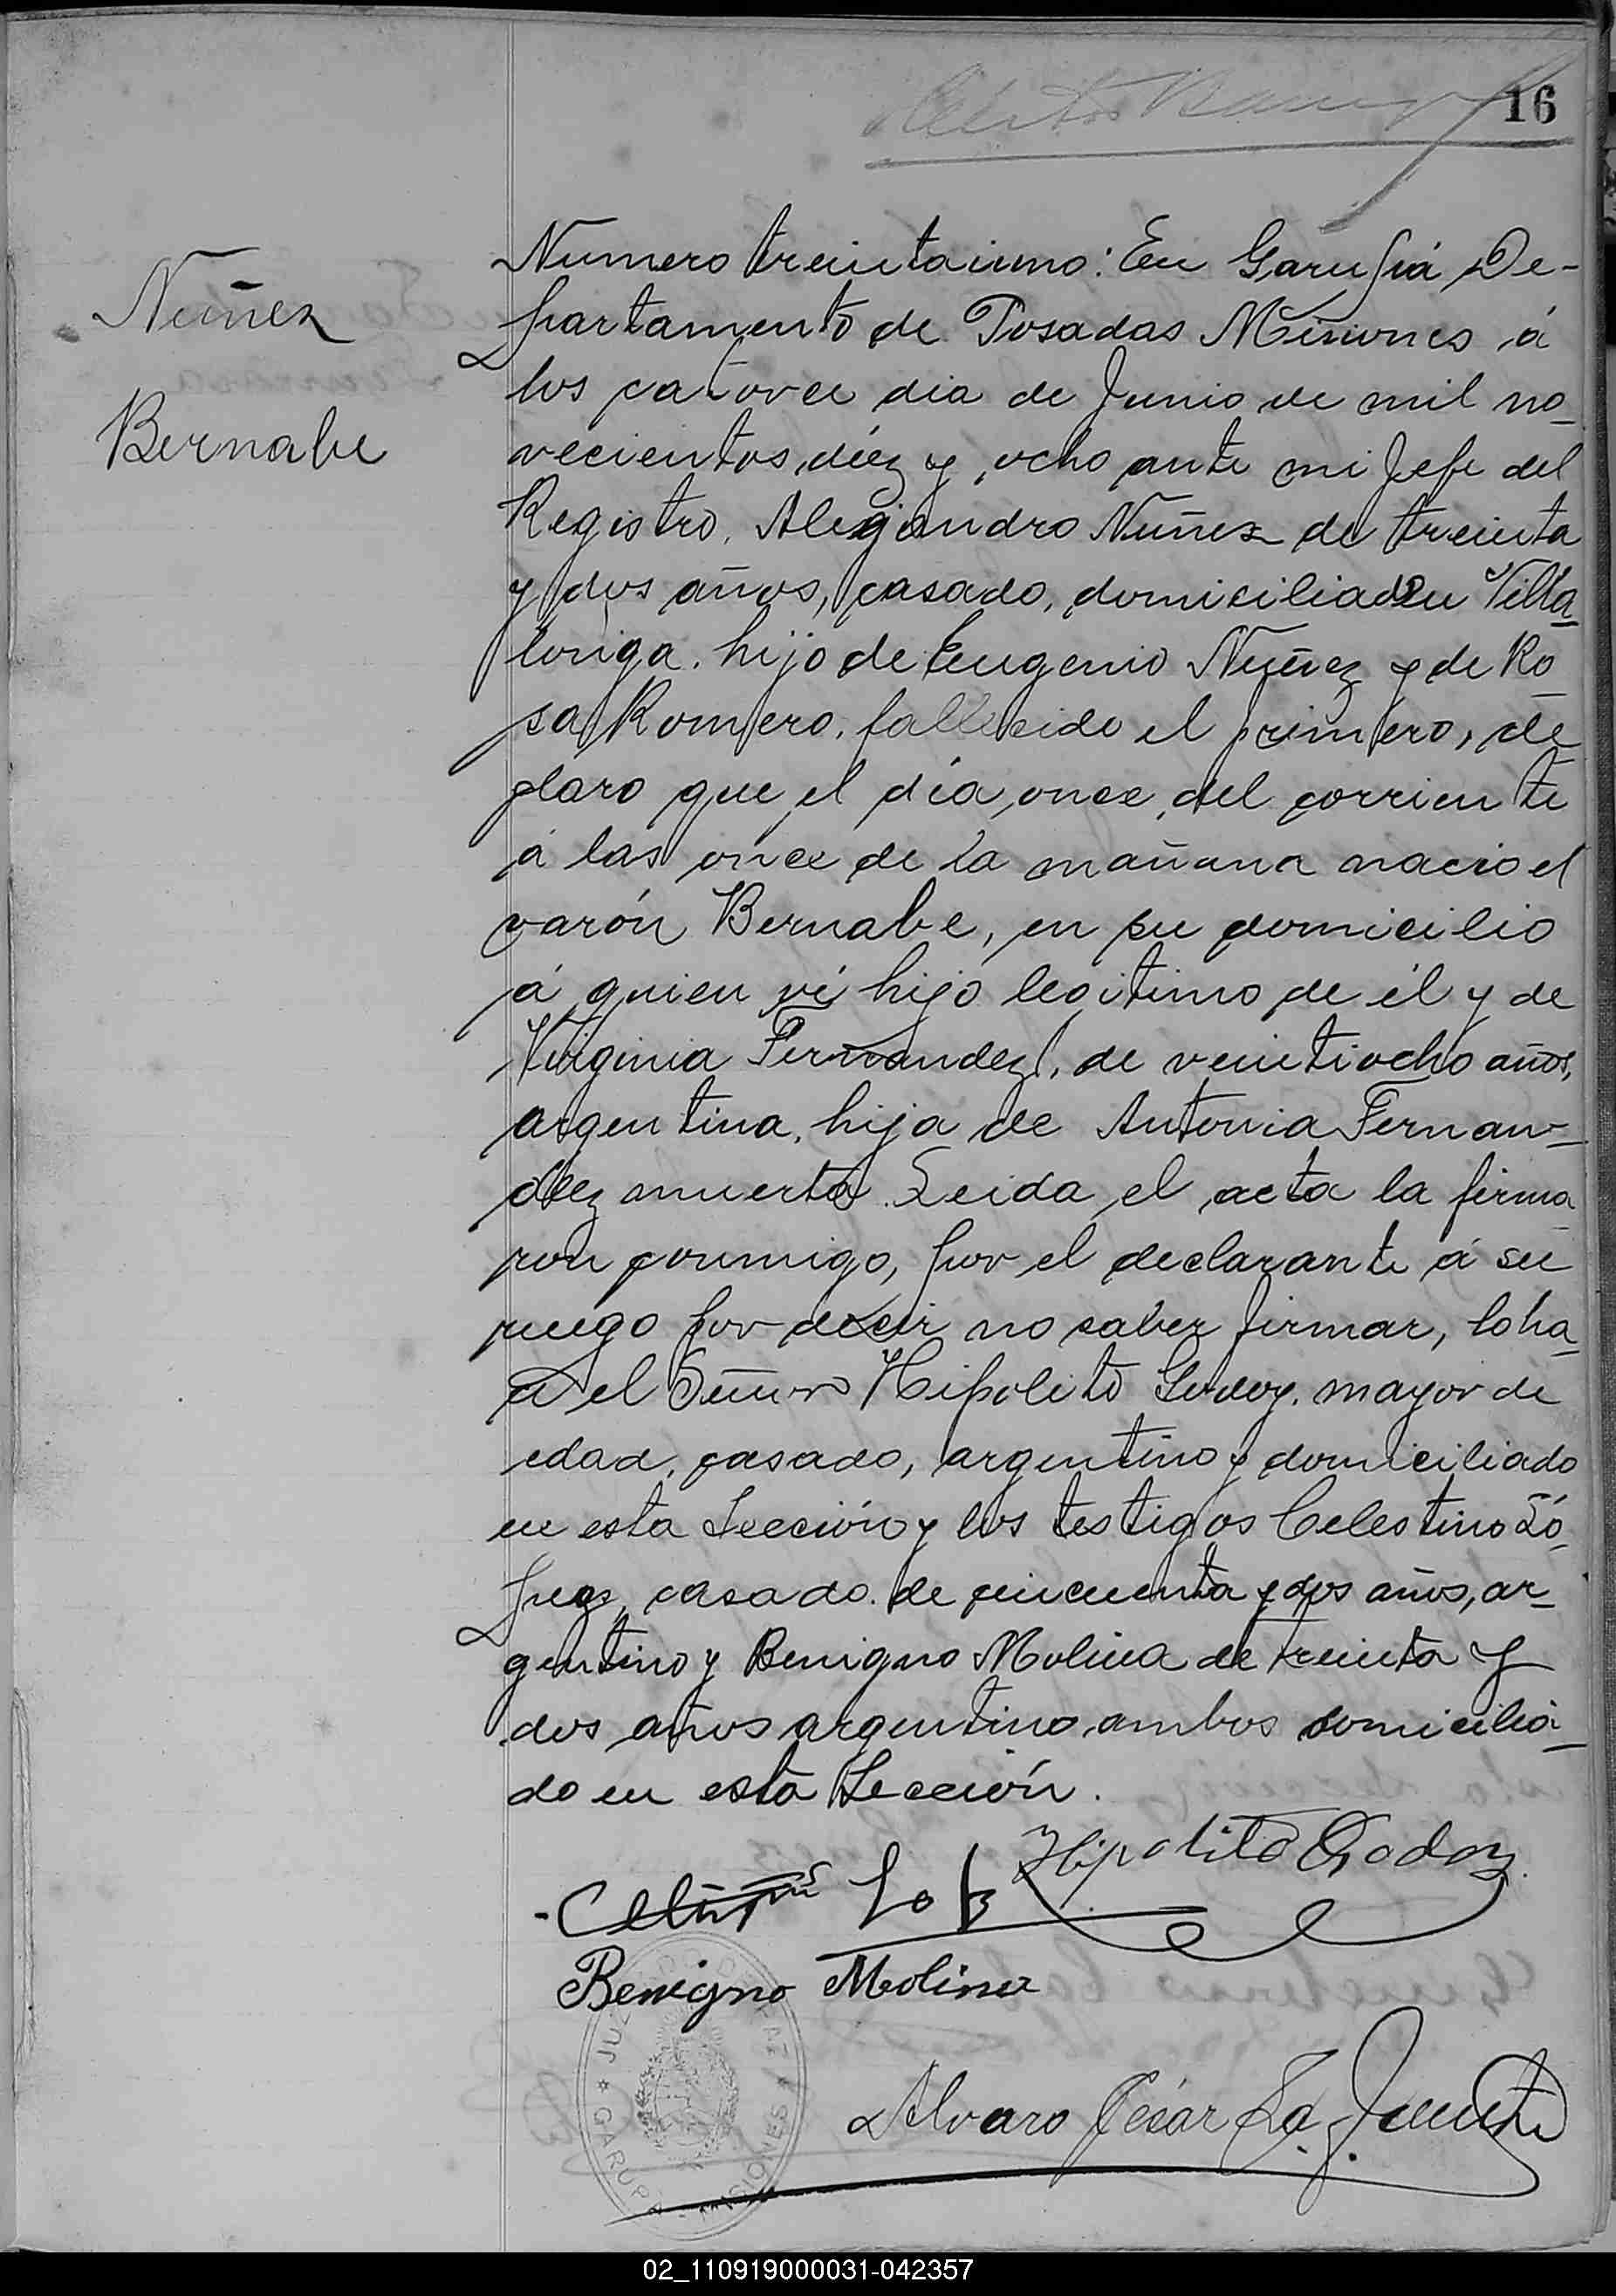 16
Nuñez
Bernabe
Numero treintaiuno: En Garupá De-
partamento de Posadas Misiones á
los catorce dia de Junio de mil no-
vecientos diez y ocho ante mi Jefe del
Registro, Alejandro Nuñez de treinta
y dos años, casado, domiciliado en Villa
longa, hijo de Eugenio Nuñez y de Ro-
sa Romero, fallecido el primero, de-
claro que el día once del corriente
á las once de la mañana nacio el
varón Bernabe, en su domicilio
á quien ví hijo legitimo de él y de
Virginia Fernandez, de veintiocho años,
argentina, hija de Antonia Fernan-
dez muerta. Leida el acta la firma
ron conmigo, por el declarante á su
ruego por decir no saber firmar, lo ha-
ce el Señor Hipolito Godoy, mayor de
edad, casado, argentino y domiciliado
en esta Sección y los testigos Celestino Ló-
pez, casado de cincuenta y dos años, ar-
gentino y Benigno Molina de treinta y
dos años argentino, ambos domicilia-
do en esta Sección.
Hipolito Godoy
Benigno Molina
Alvaro César La Fuente
JUZGADO DE PAZ
GARUPA - MISIONES
02_110919000031-042357